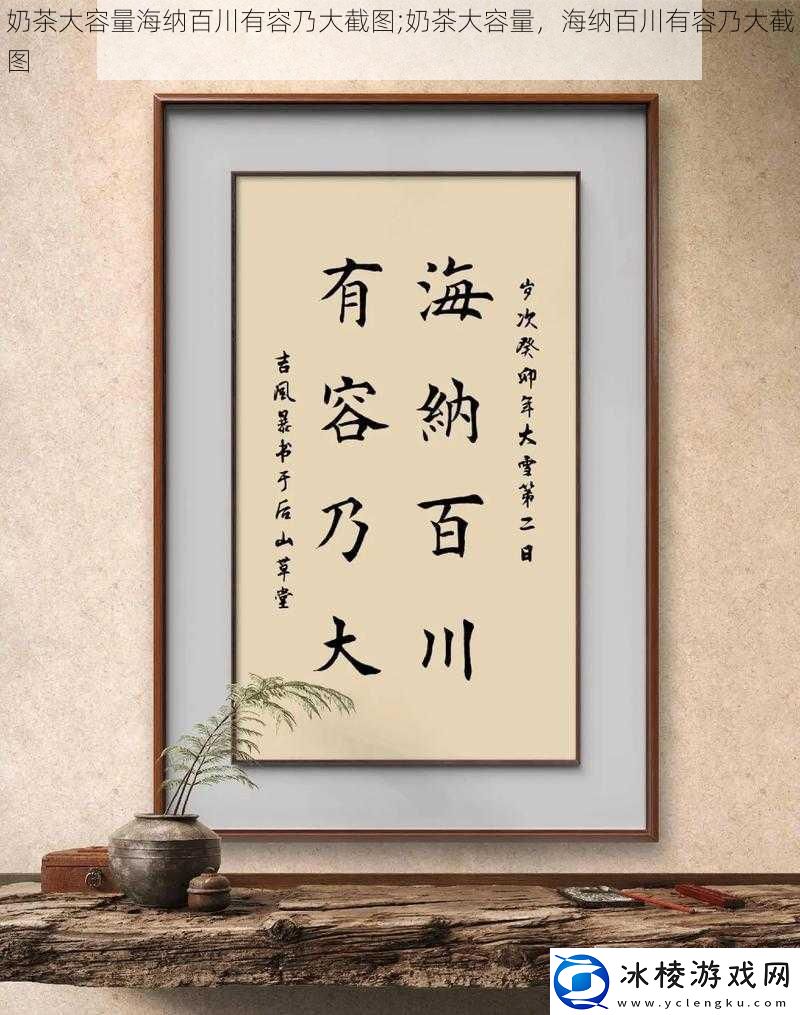 奶茶大容量海纳百川有容乃大截图;奶茶大容量，海纳百川有容乃大截
图
岁次癸卯年大雪第二日
海納百川
有容乃大
吉風暴书于后山草堂
冰棱游戏网
www.yclengku.com